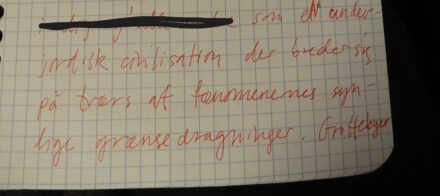 som et under-
jordisk civilisation der breder sig
på tværs af fænomenernes syn-
lige grænsedragninger. Grottebyer